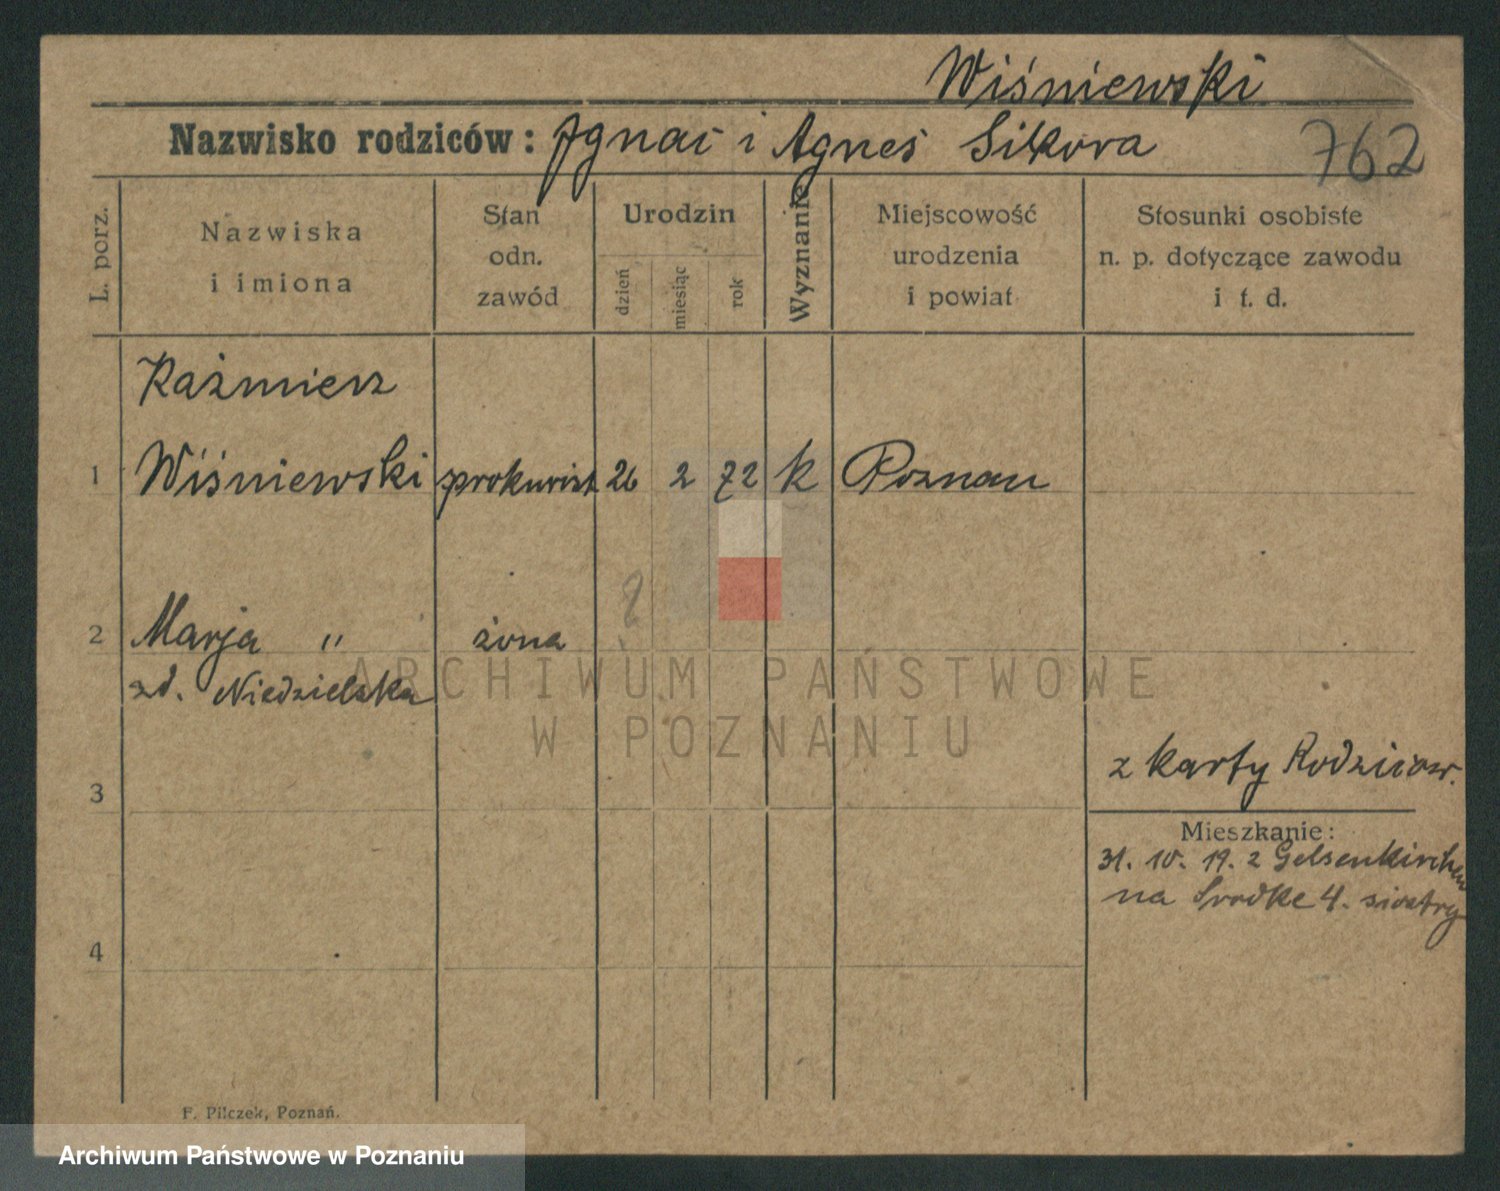 Wiśniewski
Nazwisko rodziców: Jgnac i Agnes Sikora
762
L. porz.
Nazwiska
i imiona
Stan
odn.
zawód
Urodzin
dzień
miesiąc
rok
Wyznanie
Miejscowość
urodzenia
i powiat
Stosunki osobiste
n. p. dotyczące zawodu
i t. d.
Kaźmierz
1 Wiśniewski prokurist 26 2 72 k Poznan
2 Marja " żona
zd. Niedzielska
ARCHIWUM PAŃSTWOWE
W POZNANIU
z karty Rodziców.
3
Mieszkanie:
31. 10. 19. z Gelsenkirchen
na Srodke 4. siostry
4
F. Pilczek, Poznań.
Archiwum Państwowe w Poznaniu